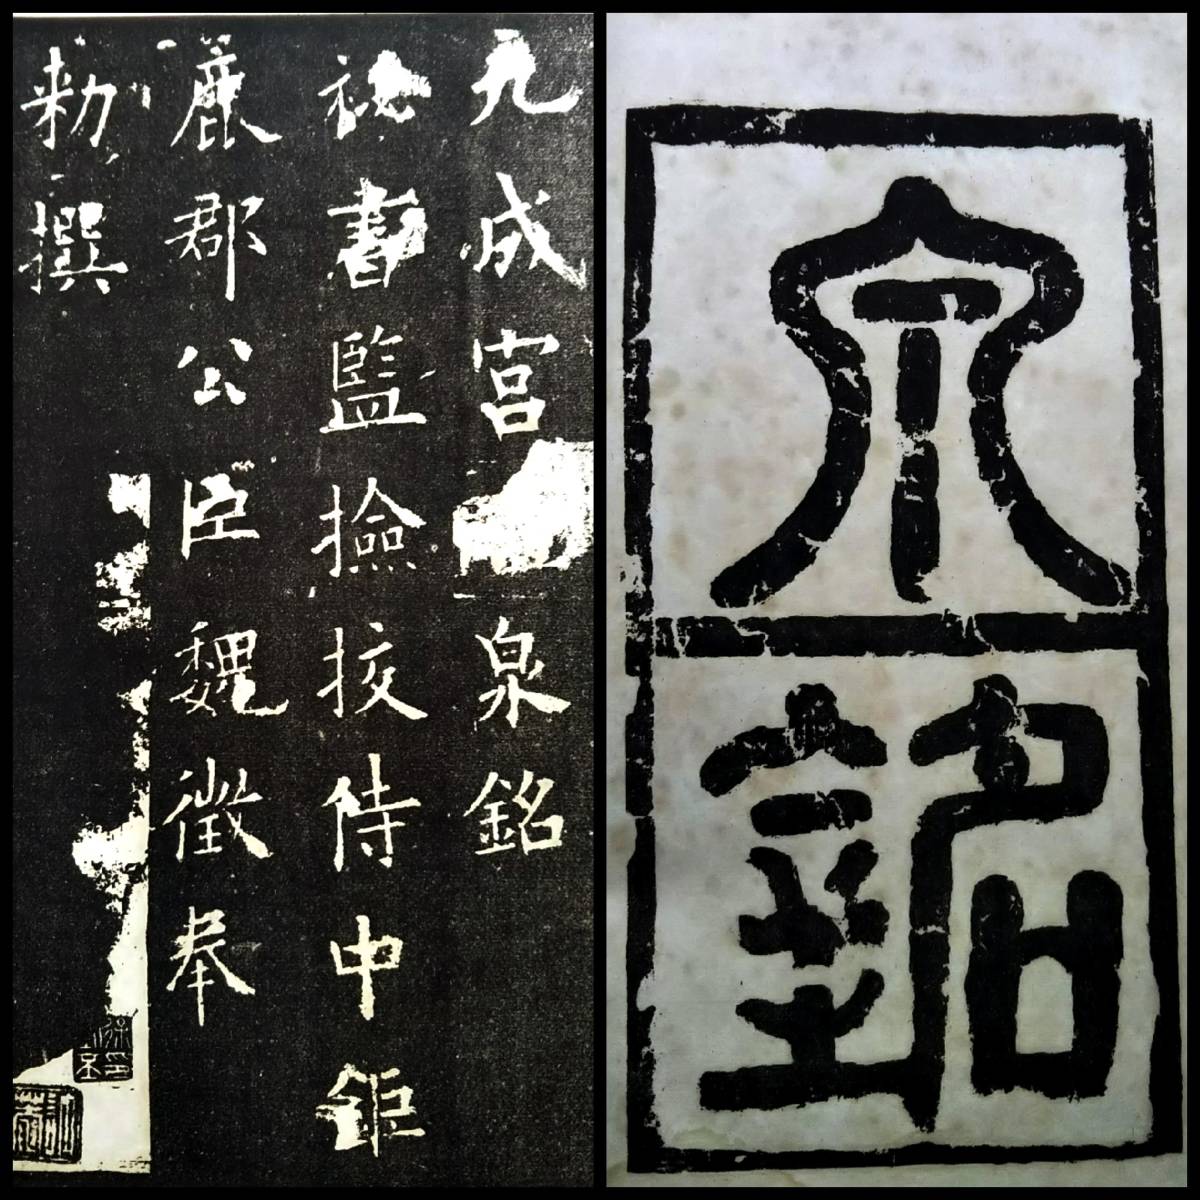 九成宮泉銘
祕書監撿挍侍中鉅
鹿郡公臣魏徵奉
勑撰
泉
銘